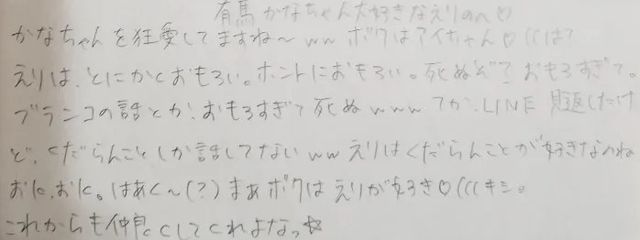 有馬かなちゃん大好きなえりのへ♡
かなちゃんを狂愛してますね〜ww ボクはアイちゃん♡((は?
えりは、とにかくおもろい。ホントにおもろい。死ぬぞ?おもろすぎて。
ブランコの話とか、おもろすぎて死ぬwww てか、LINE見返したけ
ど、くだらんことしか話してないww えりはくだらんことが好きなんね
おk、おk。はあく〜(?)まぁボクはえりが好き♡(((キモ。
これからも仲良くしてくれよなっ☆